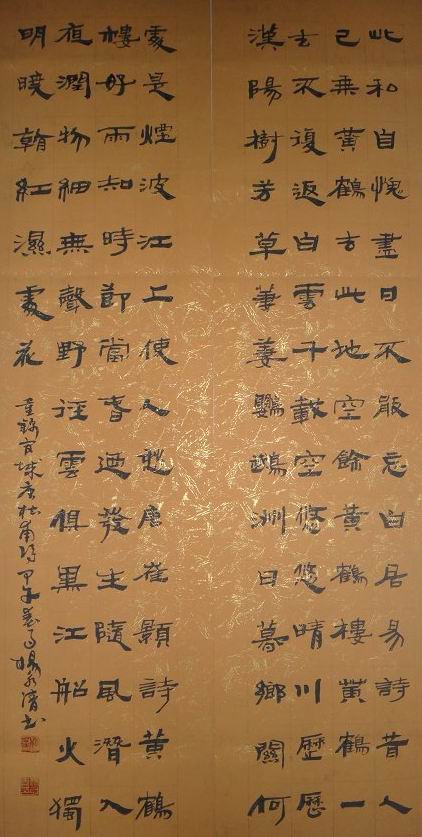 此和自愧盡日不能忘白居易詩昔人
已乘黃鶴去此地空餘黃鶴樓黃鶴一
去不復返白雲千載空悠悠晴川歷歷
漢陽樹芳草萋萋鸚鵡洲日暮鄉關何
處是煙波江上使人愁唐崔顥詩黃鶴
樓好雨知時節當春迺發生隨風潛入
夜潤物細無聲野徑雲俱黑江船火獨
明曉看紅濕處花
重錦官城唐杜甫詩甲午楊清書